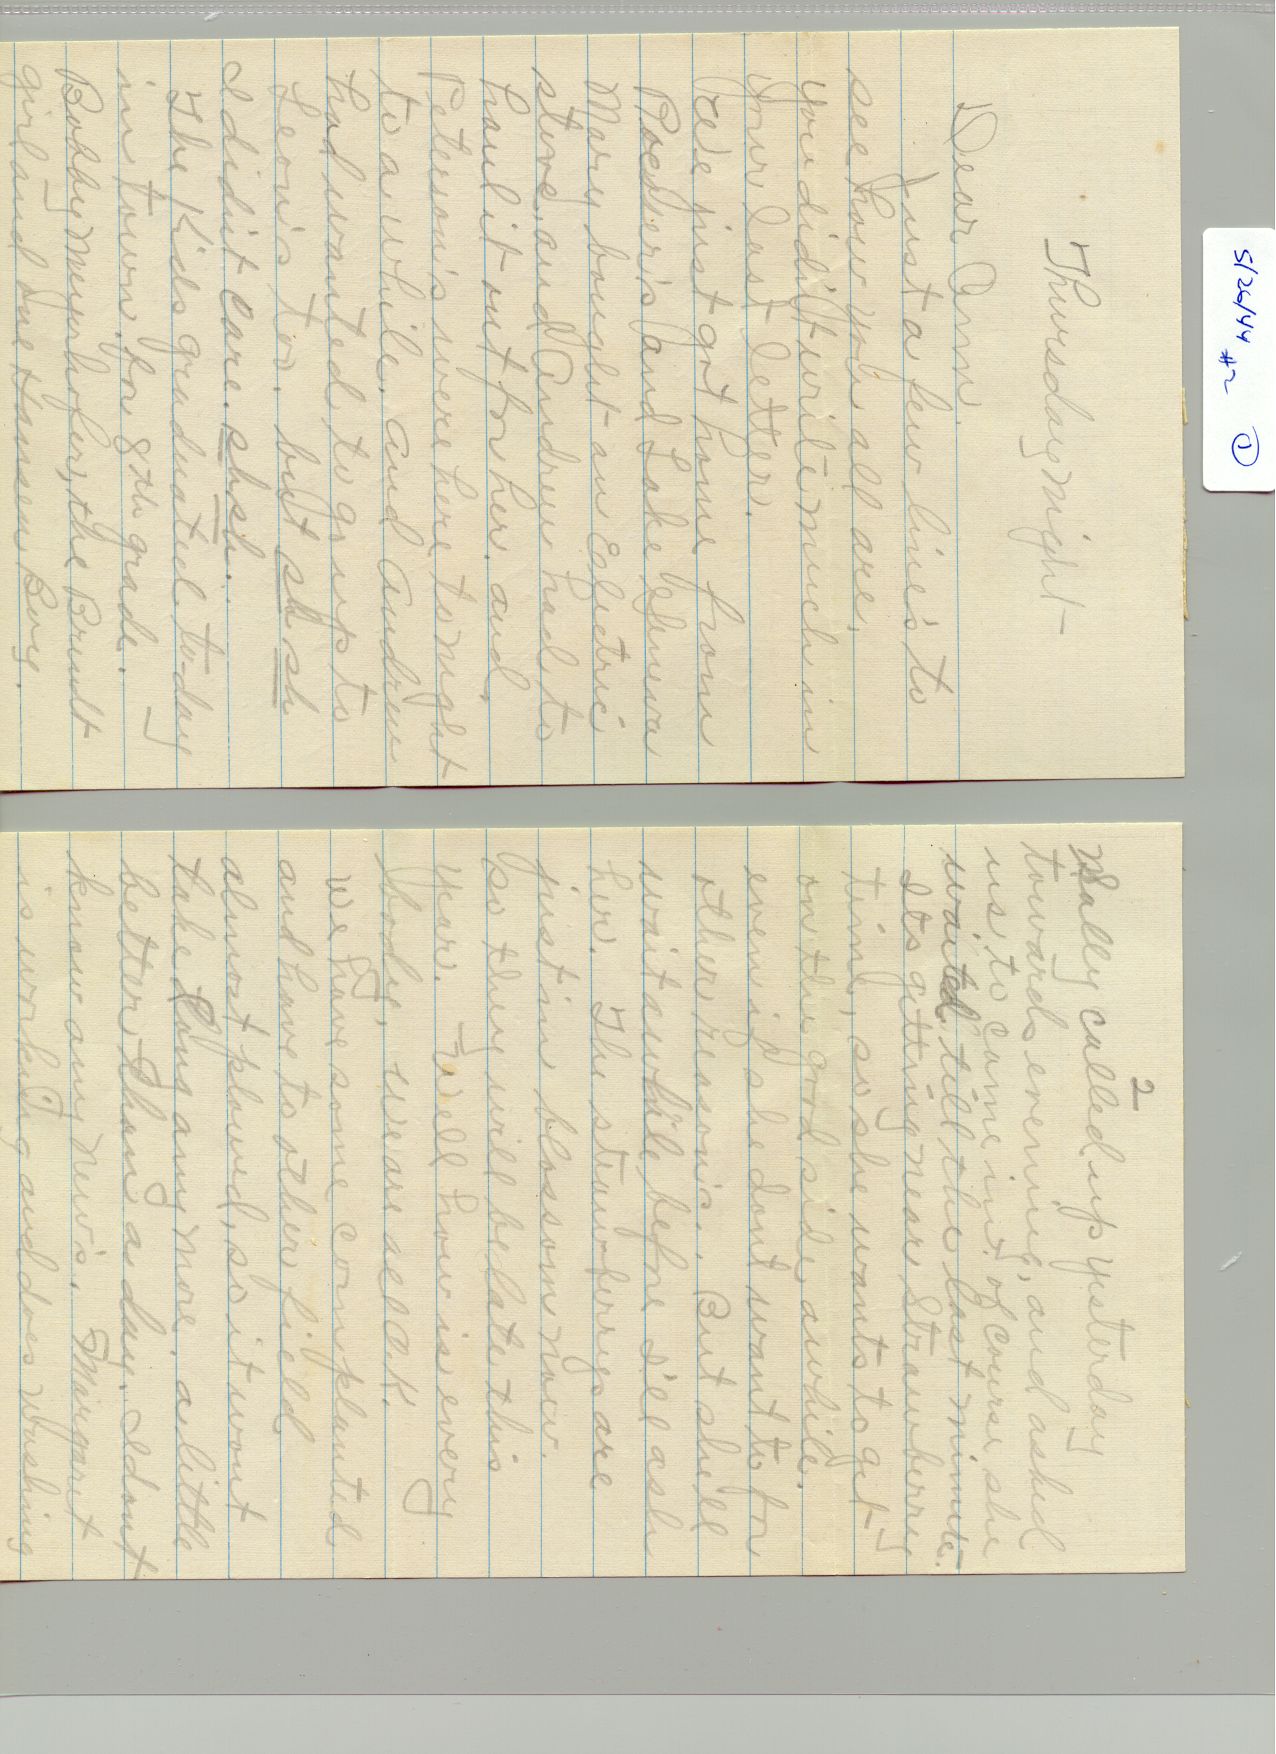 5/26/44 #2
①
Thursday night
Dear Ann.
Just a few line's to
see how you all are,
you didn't write much in
your last letter.
just got home from
Roeder's and Lake Geneva
Mary bought an Electric
stove, and Andrew had to
haul it out for her. and
Peterson's were here to night
to a while. and Andrew
had wanted to go up to
Leon's too. but sh sh
I didn't care. sh sh.
The Kids graduated to-day
in town. for 8th grade.
Bobby Meyerhofer, the Brundt
girl and one Hansen Boy.
2
Wally called up yesterday
towards evening, and asked
us to come in. of course she
waited till the last minute.
It's getting near Strawberry
time, so she wants to get
on the good side awhile.
even if she dont want to for
other reasons. But she'll
wait awhile before I'll ask
her. The strawberries are
just in blossom now.
so they will be late this
year. Well how is every
body, we are all OK.
We have some corn planted
and have to other field
almost plowed, so it wont
take long any more. a little
better than a day. I dont
know any new's. Margaret
is working and does washing